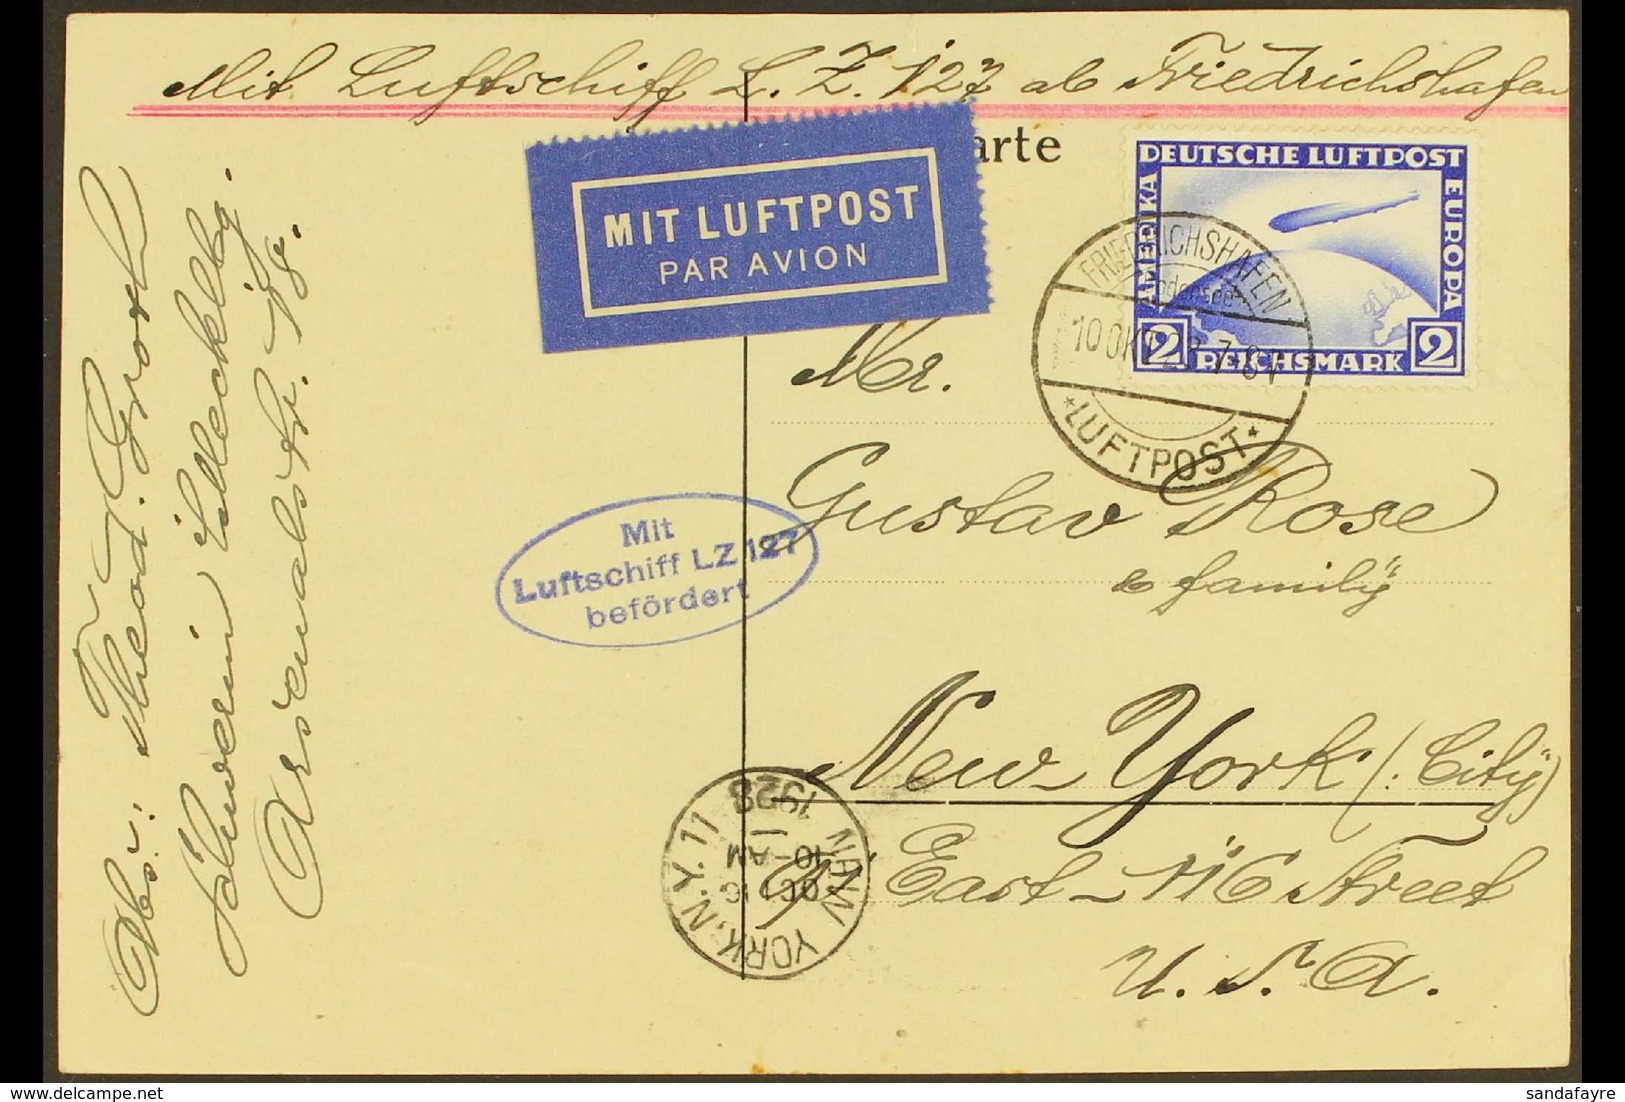 Mit Luftschiff L. Z. 127 ab Friedrichshafen
arte
MIT LUFTPOST
PAR AVION
DEUTSCHE LUFTPOST
AMERIKA
EUROPA
2 REICHSMARK 2
FRIEDRICHSHAFEN
Bodensee
10 OKT 28 7-8
* LUFTPOST *
Mr.
Gustav Rose
& family
New York (: City)
East 116 Street
U. S. A.
Mit
Luftschiff LZ 127
befördert
NEW YORK, N.Y. 11
OCT 16
10-AM
1928
Abs.: Theod. Grosch
Schwerin
Arsenalstr. 18.
sandafayre